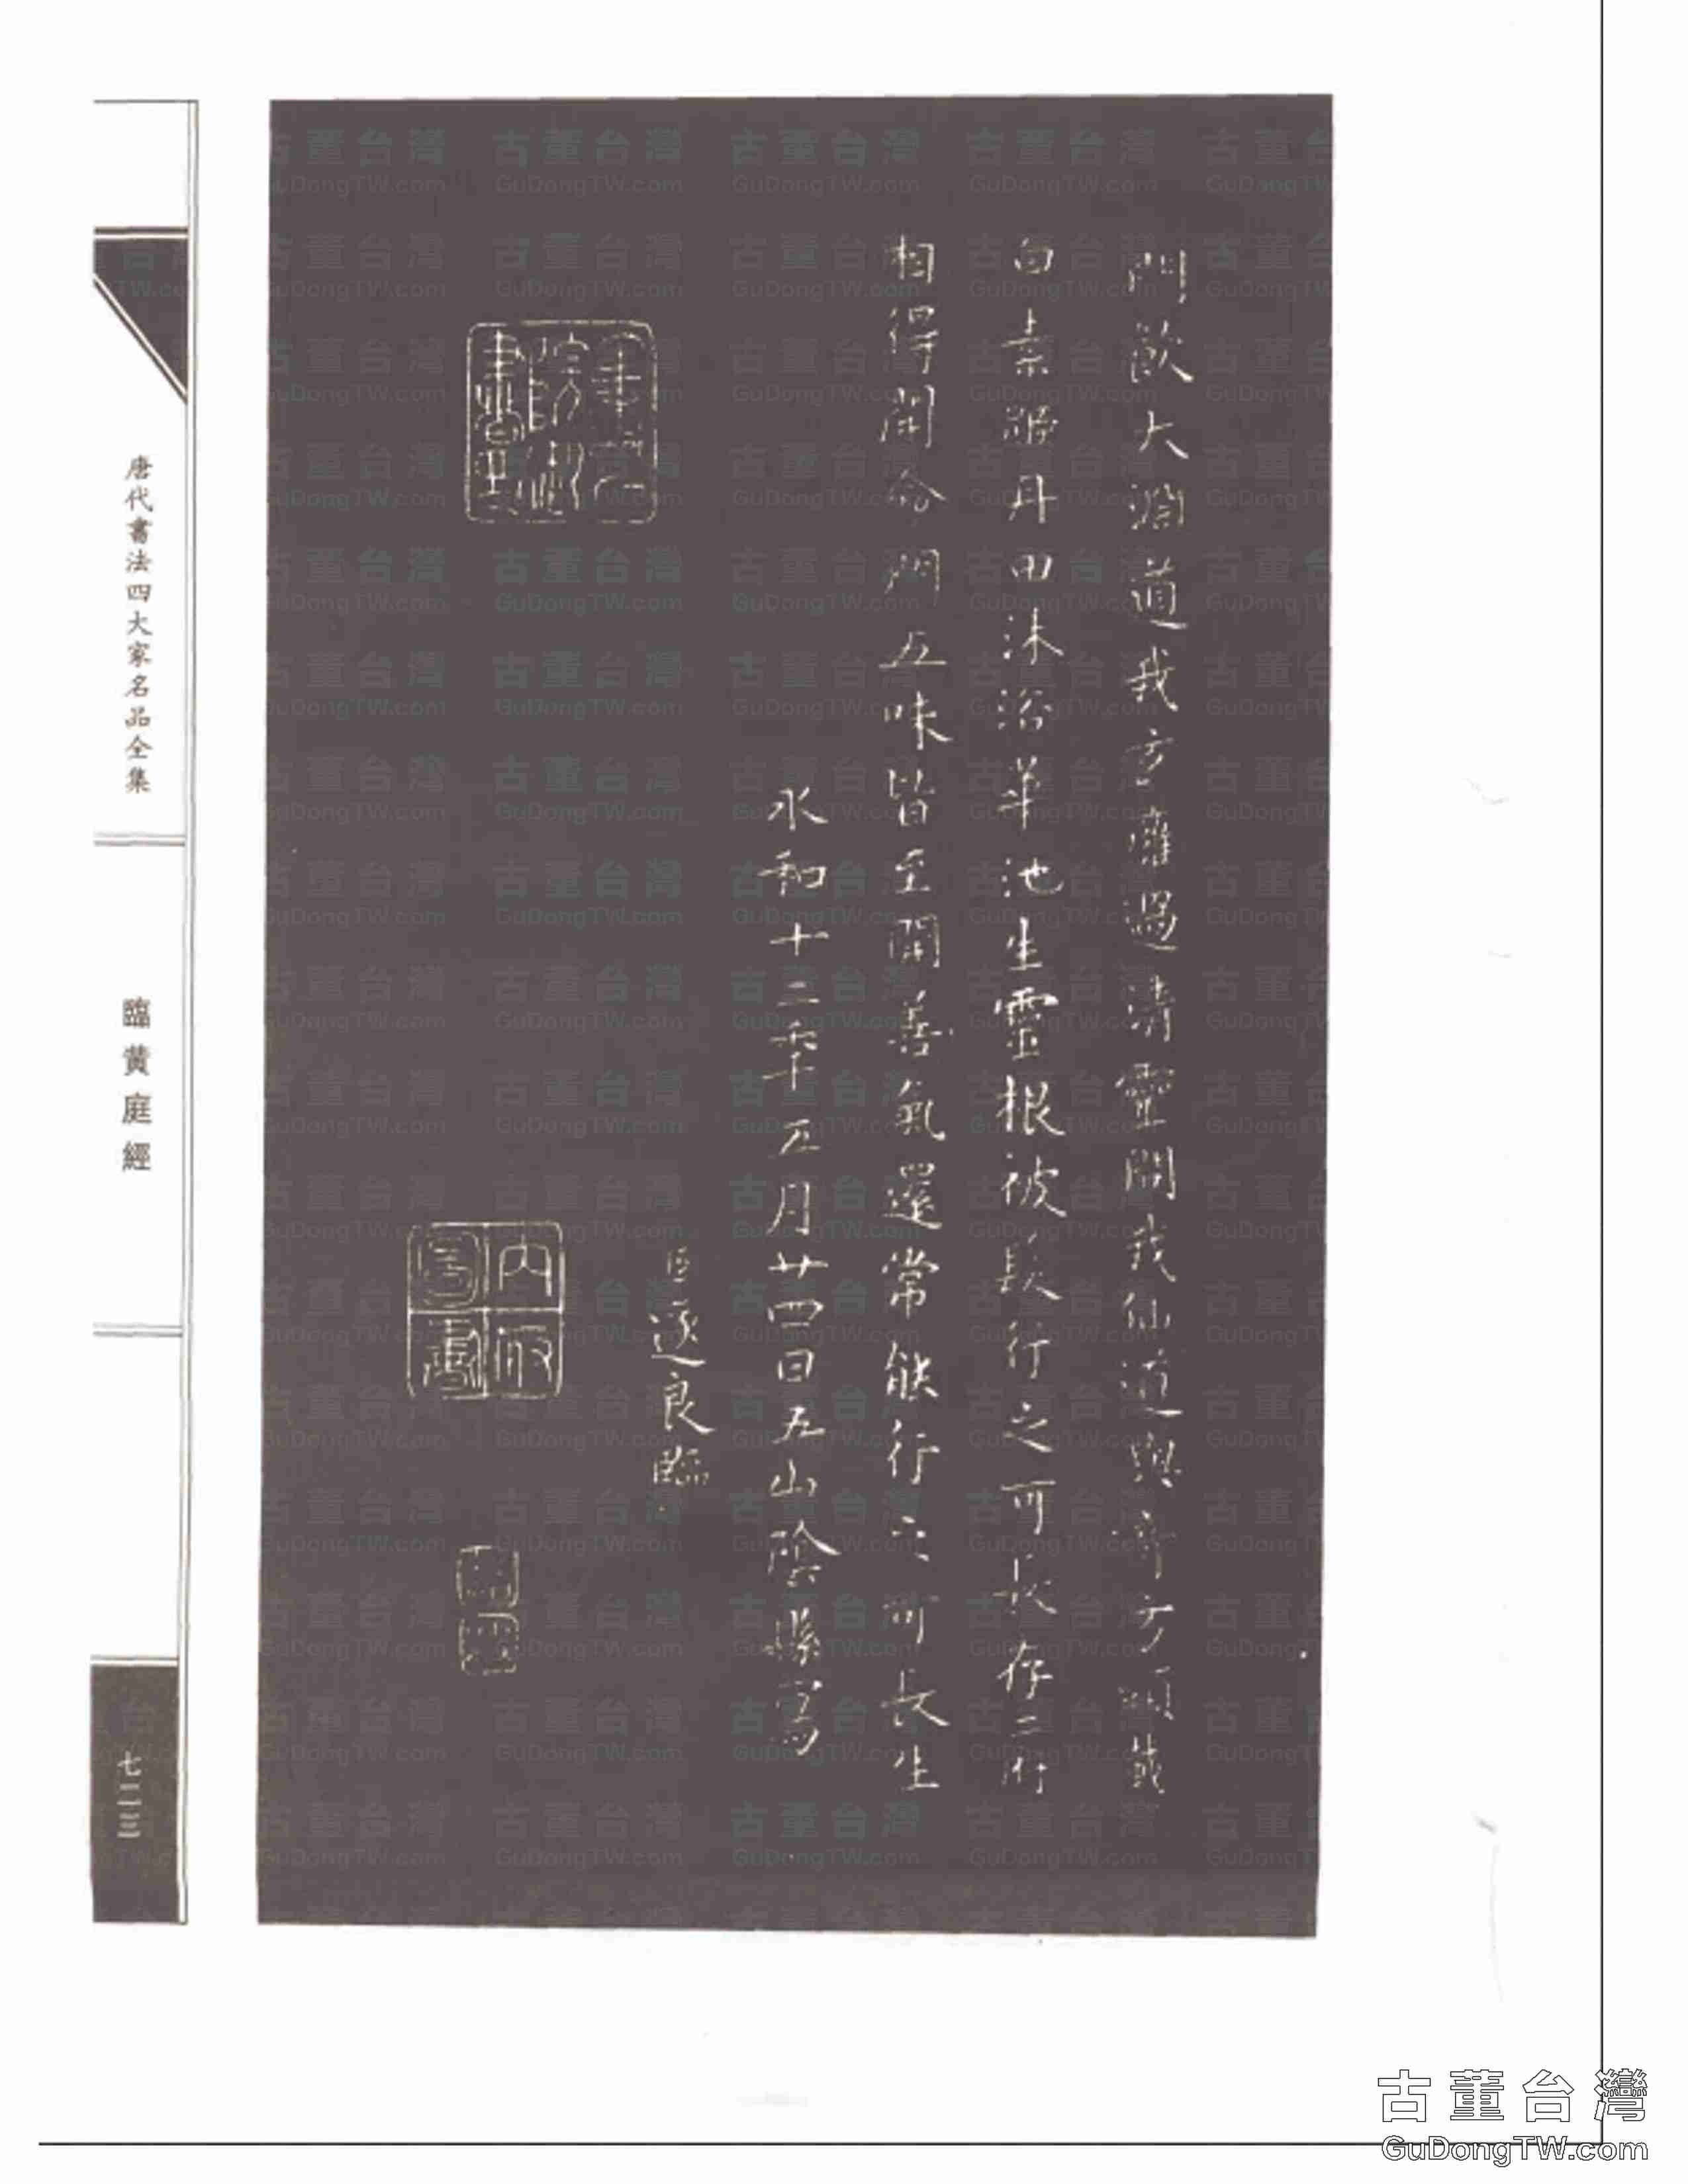 門飲大淵道我玄廱過清靈問我仙道與奇方頭戴
白素距丹田沐浴華池生靈根被髮行之可長存二府
相得開命門五味皆至開善氣還常能行之可長生
永和十二年五月廿四日五山陰縣寫
臣遂良臨
內府圖書
唐代書法四大家名品全集
臨黄庭經
七二三
古董台灣
GuDongTW.com